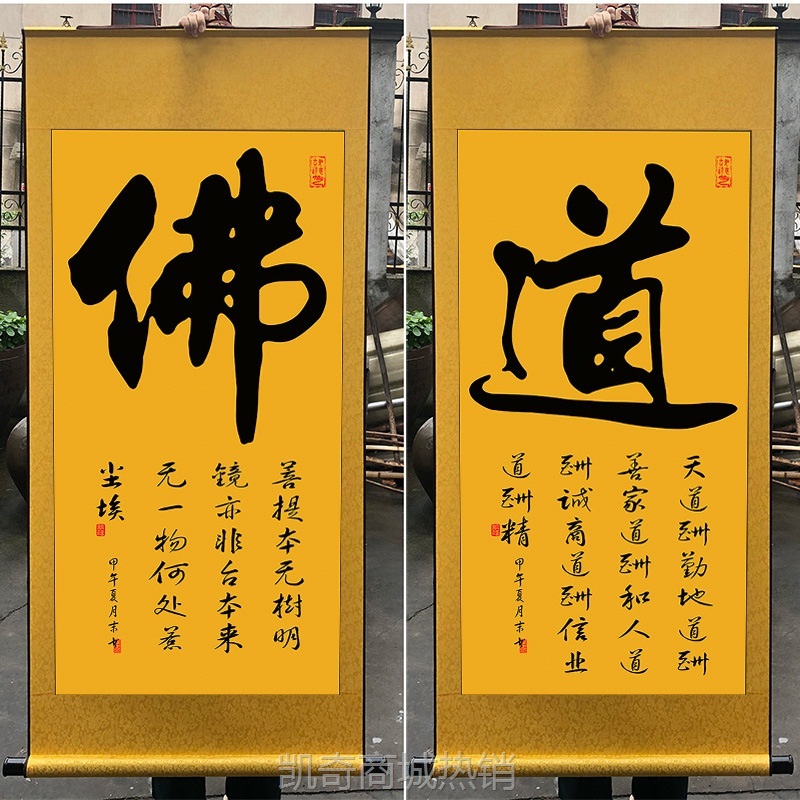 佛
菩提本无樹明
镜亦非台本来
无一物何处惹
尘埃
甲午夏月
道
天道酬勤地道酬
善家道酬和人道
酬诚商道酬信业
道酬精
甲午夏月
凯奇商城热销